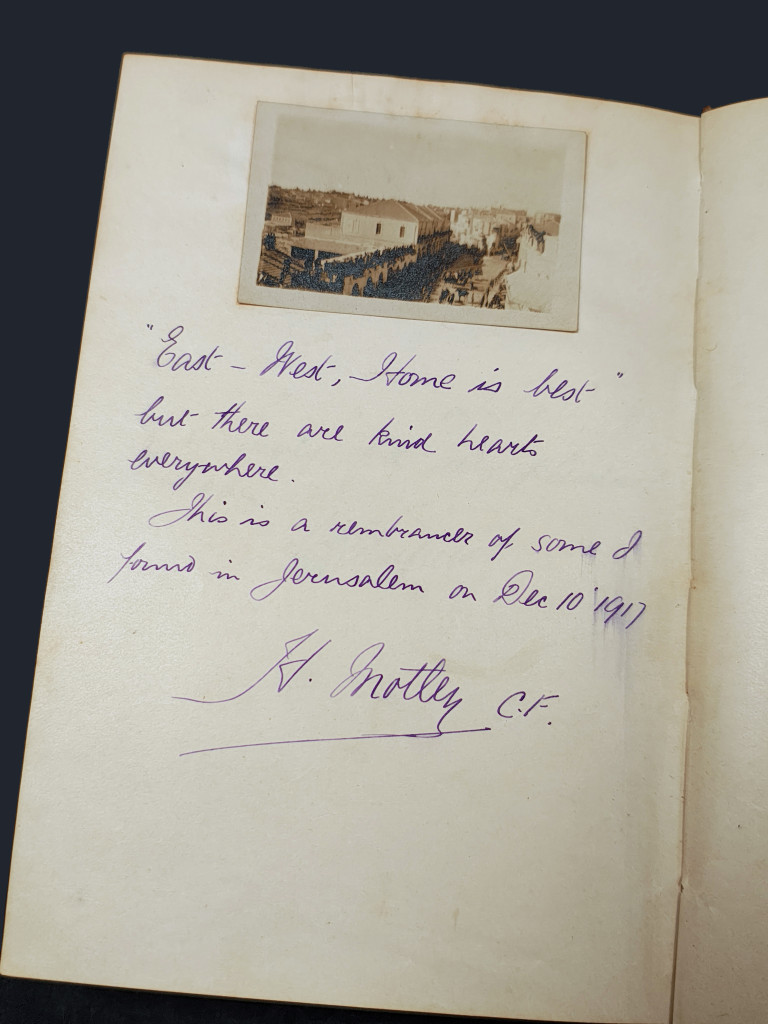 "East – West, – Home is best"
but there are kind hearts
everywhere.
This is a rembrancer of some I
found in Jerusalem on Dec 10 1917
H. Motley C.F.